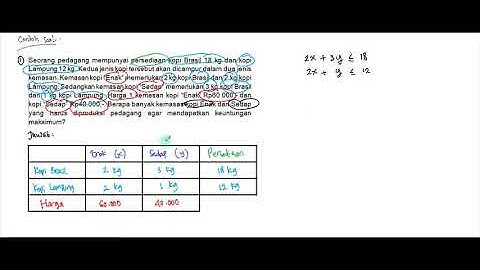 Contoh soal :
1 Seorang pedagang mempunyai persediaan kopi Brasil 18 kg dan kopi
Lampung 12 kg. Kedua jenis kopi tersebut akan dicampur dalam dua jenis
kemasan. Kemasan kopi "Enak" memerlukan 2 kg kopi Brasil dan 2 kg kopi
Lampung. Sedangkan kemasan kopi "Sedap" memerlukan 3 kg kopi Brasil
dan 1 kg kopi Lampung. Harga 1 kemasan kopi "Enak" Rp60.000,- dan
kopi "Sedap" Rp40.000,-. Berapa banyak kemasan kopi Enak dan Sedap
yang harus diproduksi pedagang agar mendapatkan keuntungan
maksimum?
2x + 3y ≤ 18
2x + y ≤ 12
Jawab :
Enak (x) Sedap (y) Persediaan
Kopi Brasil 2 kg 3 kg 18 kg
Kopi Lampung 2 kg 1 kg 12 kg
Harga 60.000 40.000